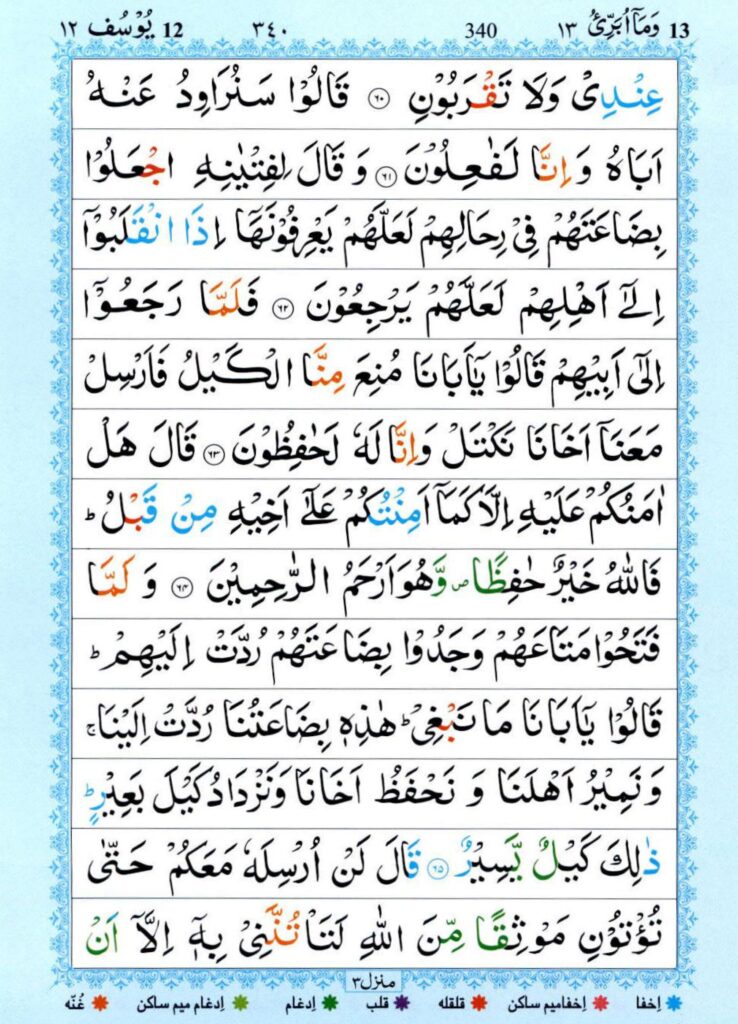 13 وَمَآ اُبَرِّئُ ١٣ 340 ٣٤٠ 12 يُوْسُف ١٢
عِنْدِىْ وَلَا تَقْرَبُوْنِ ﴿٦٠﴾ قَالُوْا سَنُرَاوِدُ عَنْهُ
اَبَاهُ وَاِنَّا لَفٰعِلُوْنَ ﴿٦١﴾ وَقَالَ لِفِتْيٰنِهِ اجْعَلُوْا
بِضَاعَتَهُمْ فِىْ رِحَالِهِمْ لَعَلَّهُمْ يَعْرِفُوْنَهَاۤ اِذَا انْقَلَبُوْۤا
اِلٰٓى اَهْلِهِمْ لَعَلَّهُمْ يَرْجِعُوْنَ ﴿٦٢﴾ فَلَمَّا رَجَعُوْۤا
اِلٰٓى اَبِيْهِمْ قَالُوْا يٰۤاَبَانَا مُنِعَ مِنَّا الْكَيْلُ فَاَرْسِلْ
مَعَنَاۤ اَخَانَا نَكْتَلْ وَاِنَّا لَهٗ لَحٰفِظُوْنَ ﴿٦٣﴾ قَالَ هَلْ
اٰمَنُكُمْ عَلَيْهِ اِلَّا كَمَاۤ اَمِنْتُكُمْ عَلٰٓى اَخِيْهِ مِنْ قَبْلُ ؕ
فَاللّٰهُ خَيْرٌ حٰفِظًا ۪ وَّهُوَ اَرْحَمُ الرّٰحِمِيْنَ ﴿٦٤﴾ وَلَمَّا
فَتَحُوْا مَتَاعَهُمْ وَجَدُوْا بِضَاعَتَهُمْ رُدَّتْ اِلَيْهِمْ ؕ
قَالُوْا يٰۤاَبَانَا مَا نَبْغِىْ ؕ هٰذِهٖ بِضَاعَتُنَا رُدَّتْ اِلَيْنَا ۚ
وَنَمِيْرُ اَهْلَنَا وَنَحْفَظُ اَخَانَا وَنَزْدَادُ كَيْلَ بَعِيْرٍ ؕ
ذٰلِكَ كَيْلٌ يَّسِيْرٌ ﴿٦٥﴾ قَالَ لَنْ اُرْسِلَهٗ مَعَكُمْ حَتّٰى
تُؤْتُوْنِ مَوْثِقًا مِّنَ اللّٰهِ لَتَاْتُنَّنِىْ بِهٖۤ اِلَّاۤ اَنْ
منزل ٣
اِخفا اِخفامیم ساکن قلقله قلب اِدغام اِدغام میم ساکن غُنّه